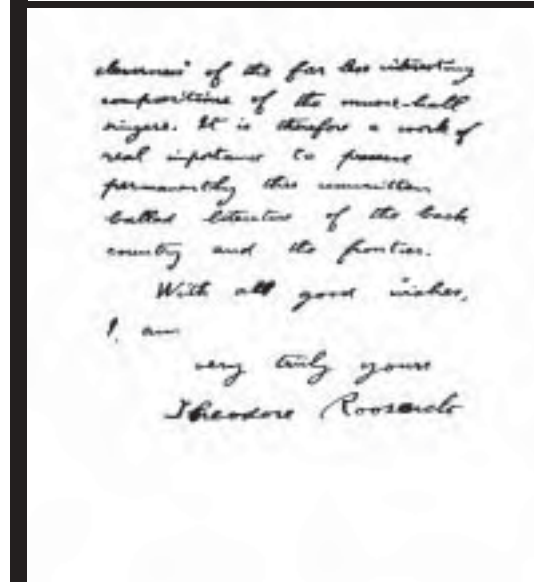 cleverness" of the far less interesting
compositions of the music-hall
singers. It is therefore a work of
real importance to preserve
permanently this unwritten
ballad literature of the back
country and the frontier.
With all good wishes,
I am
very truly yours
Theodore Roosevelt